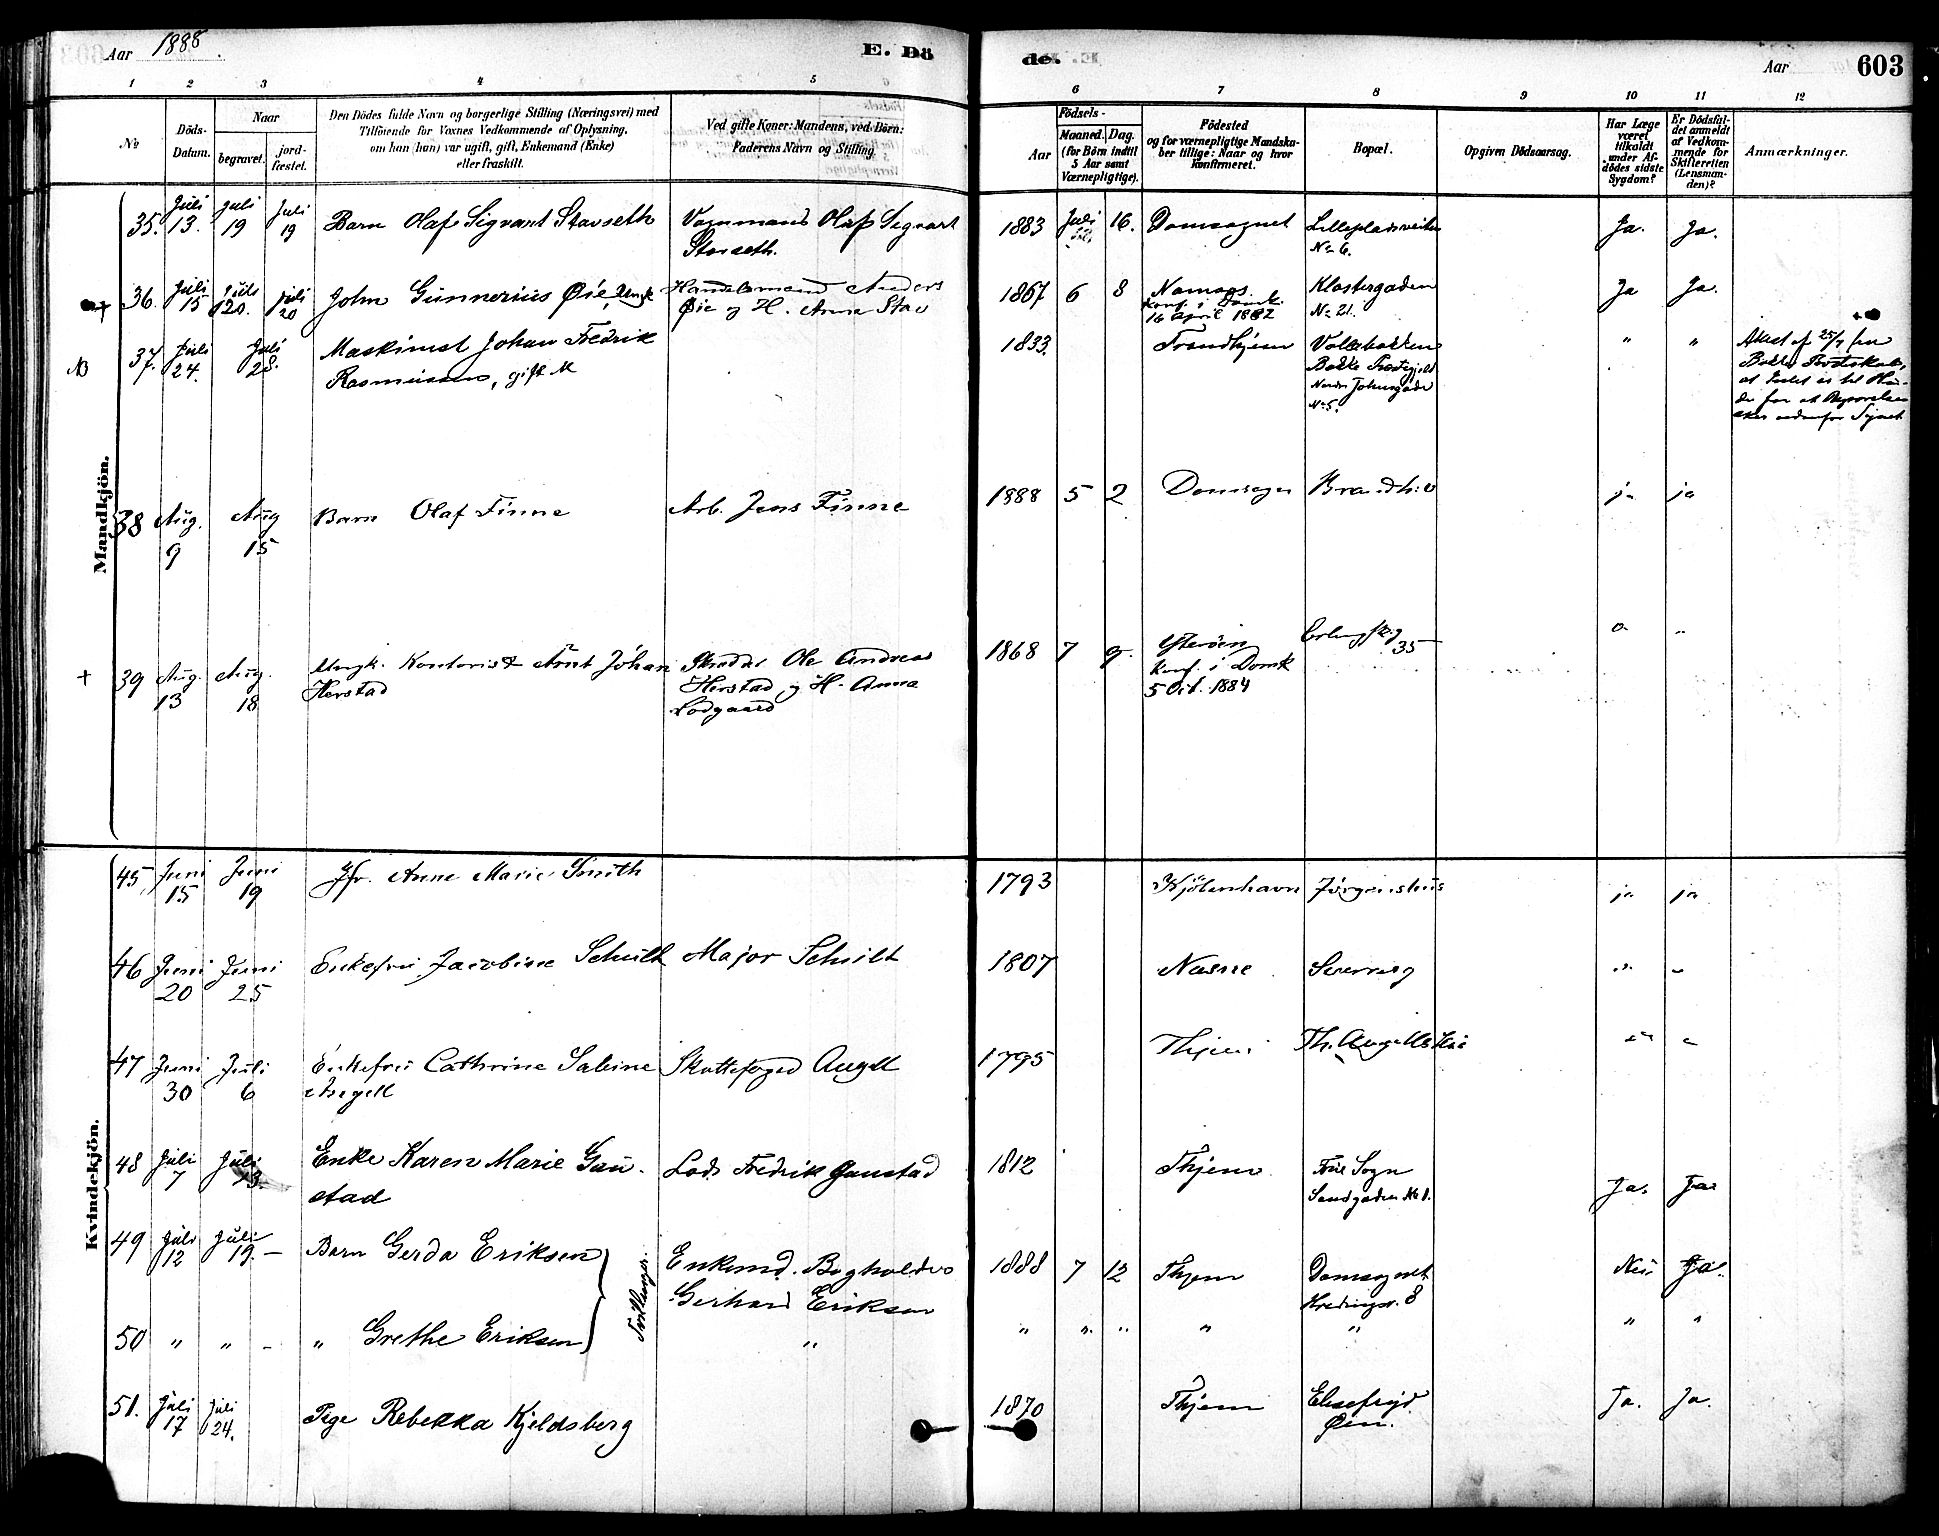 Aar 1888.
E. Dö
de.
Aar
603
1 2 3 4 5 6 7 8 9 10 11 12
No
Döds-
Datum.
Naar
begravet.
jord-
fæstet.
Den Dödes fulde Navn og borgerlige Stilling (Næringsvei) med
Tilföiende for Voxnes Vedkommende af Oplysning,
om han (hun) var ugift, gift, Enkemand (Enke)
eller fraskilt.
Ved gifte Koner: Mandens, ved Börn:
Faderens Navn og Stilling.
Födsels-
Aar
Maaned. Dag.
(for Börn indtil
5 Aar samt
Værnepligtige).
Födested
og for værnepligtige Mandska-
ber tillige: Naar og hvor
konfirmeret.
Bopæl.
Opgiven Dödsaarsag.
Har Læge
været
tilkaldt
under Af-
dödes sidste
Sygdom?
Er Dödsfal-
det anmeldt
af Vedkom-
mende for
Skifteretten
(Lensman-
den)?
Anmærkninger.
Mandkjön.
35. Juli 13. Juli 19 Juli 19 Barn Olaf Sigvart Stavseth Vognmand Olaf Sigvart 1883 Juli 16. Domsognet Lilleplads No 6. Ja. Ja.
Stavseth.
36. Juli 15 Juli 20. Juli 20 John Gunnerius Øie, Ungk Handelsmand Anders 1867 6 8 Namsos Klostergaden Ja Ja.
Øie og H. Anna Stav
Konf. i Domk. No 21.
16 April 1882
37. Juli 24. Juli 28. Maskinist Johan Fredrik 1833. Trondhjem " "
Rasmussen, gift M
Bakke Præstegjeld
No 5.
Attest af 25/7 fra
38 Aug. 9 Aug 15 Barn Olaf Finne Arb. Jens Finne 1888 5 2 Domsogn ja ja
+ 39 Aug. 13 Aug. 18 Ungk. Kontorist Arnt Johan Skrædder Ole Andreas 1868 7 9. Ytterøen 35
Herstad Herstad og H. Anna Konf. i Domk
Lodgaard 5 Oct. 1884
Kvindekjön.
45, Juni 15 Juni 19 Jfr. Anne Marie Smith 1793 Kjöbenhavn Jörgenshus ja ja
46 Juni 20 Juni 25 Enkefru Jacobine Schult Major Schult 1807
47 Juni 30 Juli 6 Enkefru Cathrine Sabine Skattefoged Angell 1795 Thjem Th. Angells Hus
Angell
48 Juli 7 Juli 13. Enke Karen Marie Gun- Lods Fredrik Gunstad 1812 Thjem Sogn Ja. Ja
stad Sandgaden No 1.
49 Juli 12 Juli 19. Barn Gerda Eriksen Enkemd. Bogholder 1888 7 12 Thjem Domsognet Nei Ja.
Gerhard Eriksen 8
Tvillinger.
50 " " " Grethe Eriksen " " " " " " " "
51. Juli 17 Juli 24. Pige Rebekka Kjeldsberg 1870 Thjem Elsefryd Ja. Ja.
Øen.